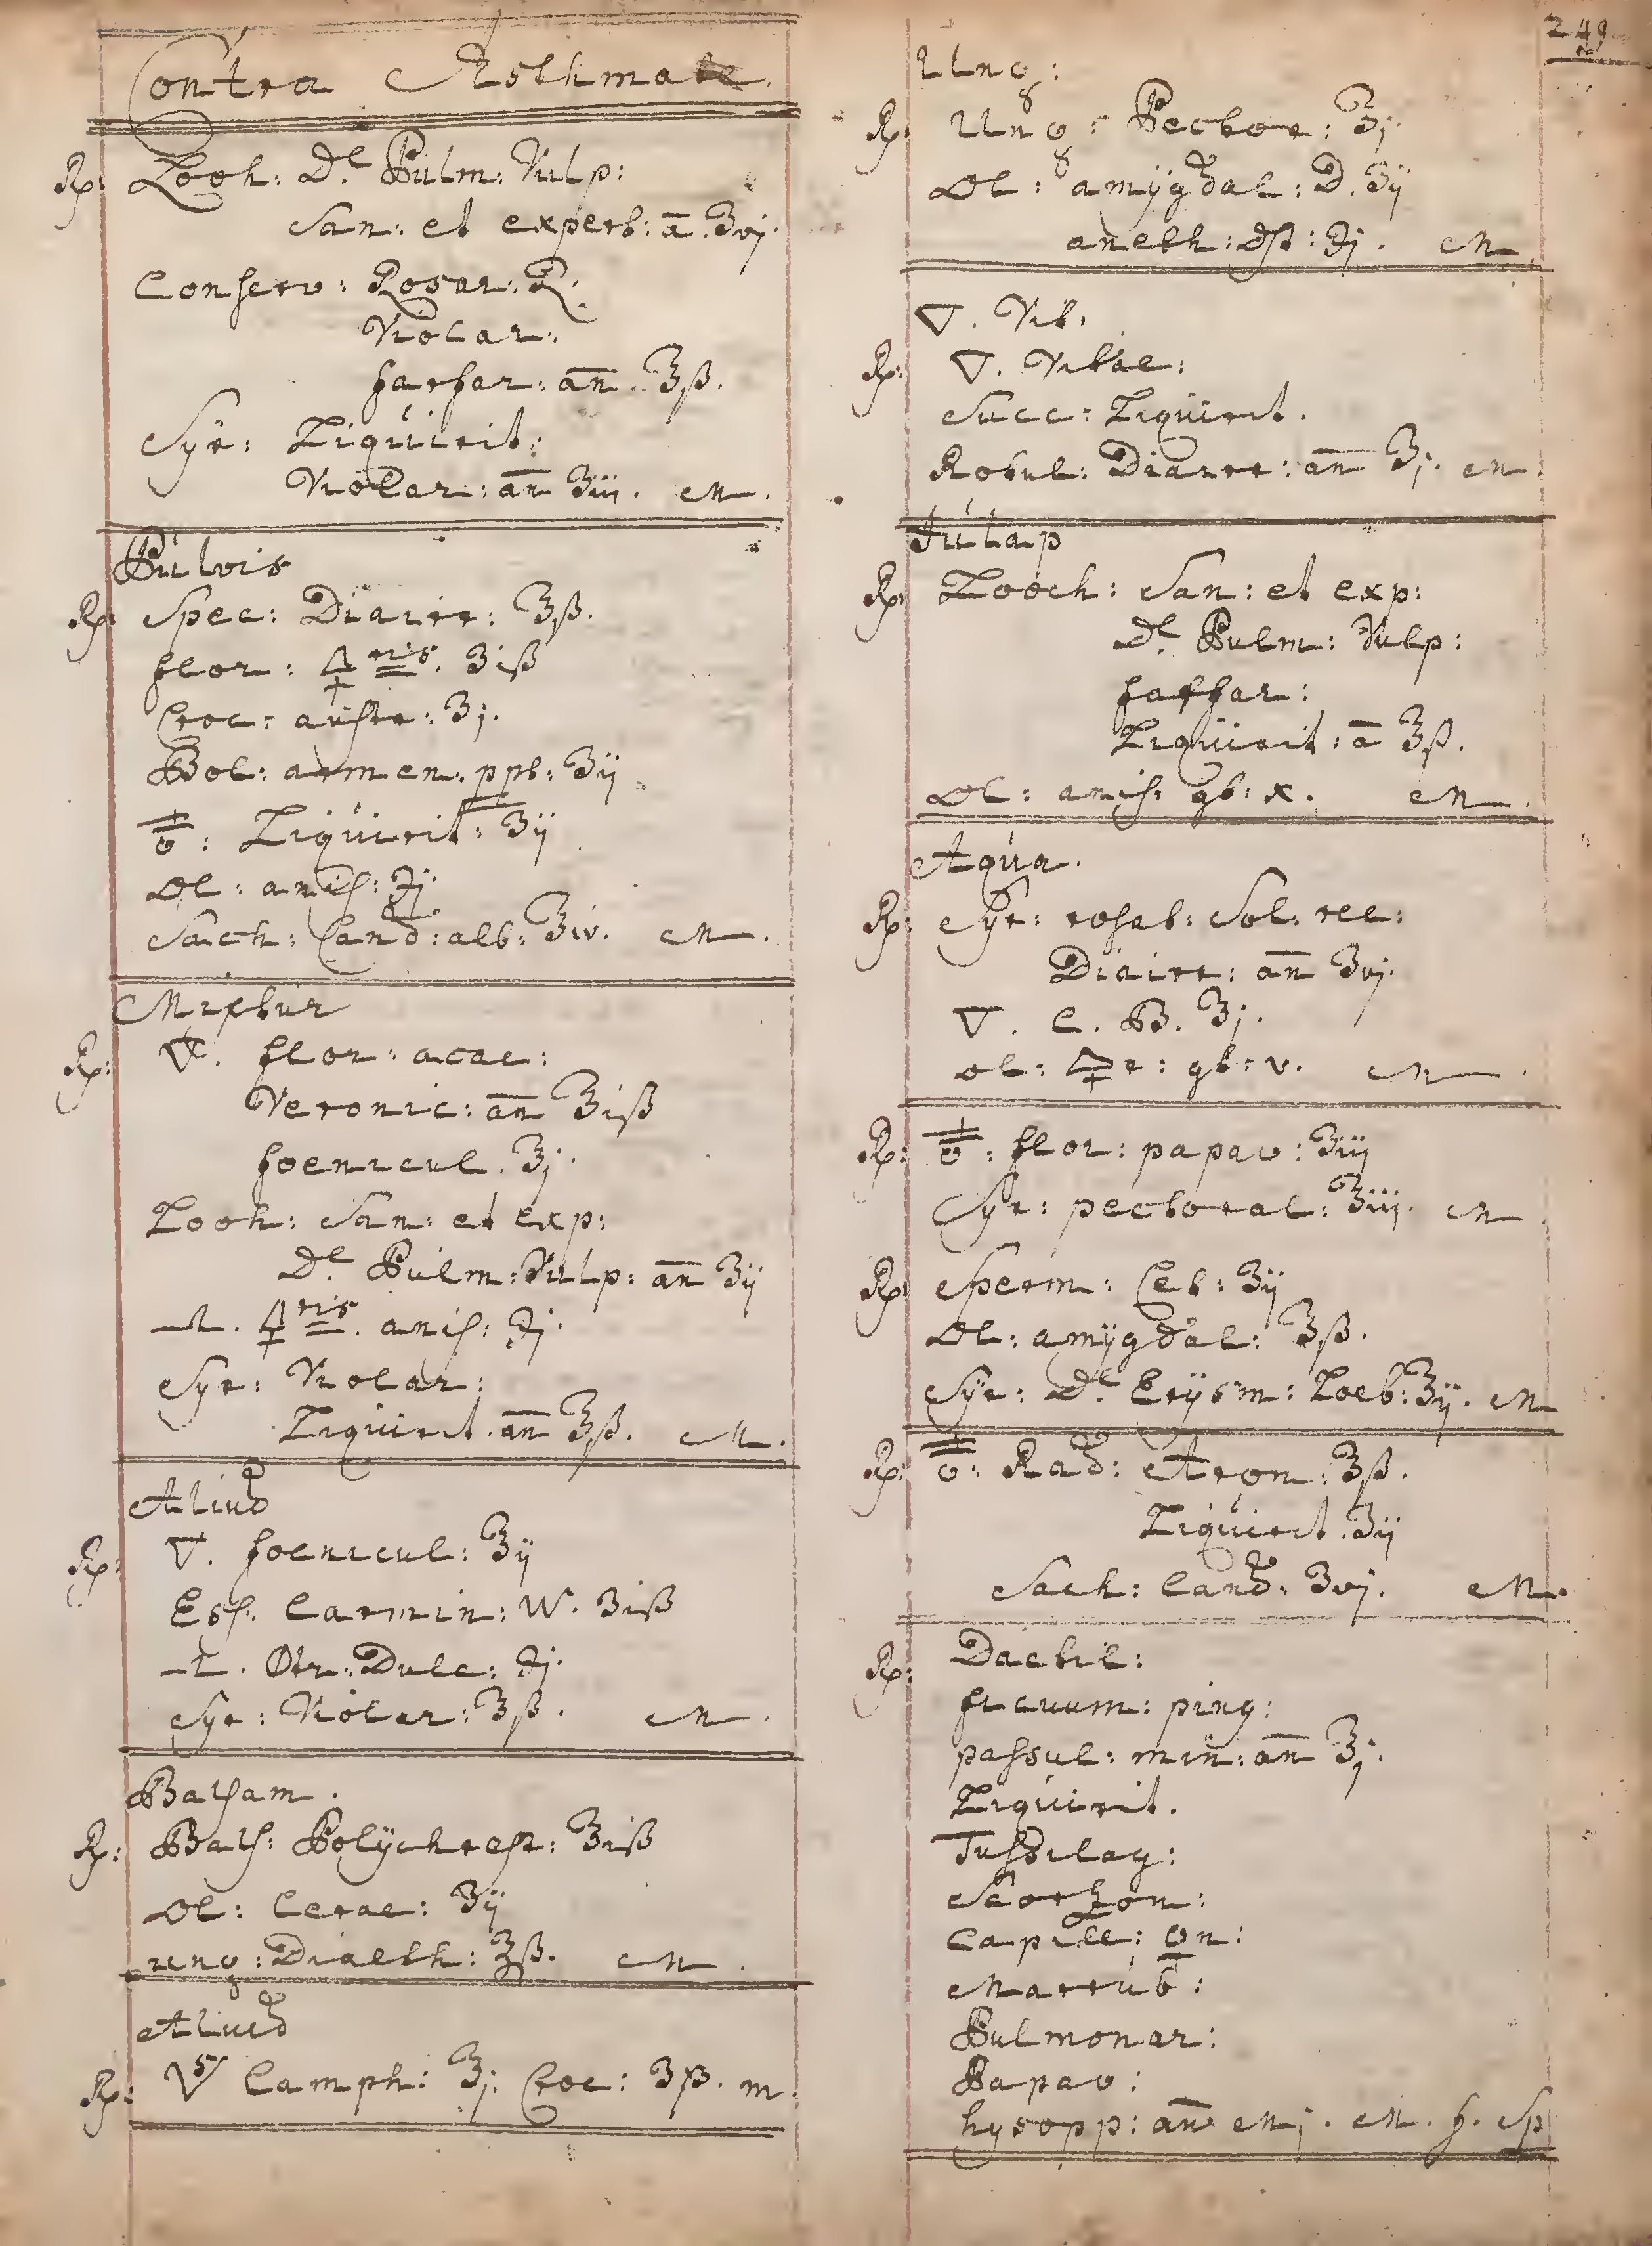 249
Contra Asthmate.
Rp: Looh: De Pulm: Vulp:
San: et expert: a ʒvj.
Conserv: Rosar. R.
Violar:
farfar: an ℥ß.
Syr: Liquirit:
Violar: an ʒiij. M.
Pulvis
Rp: Spec: Diairr: ℥ß.
flor: 🜍nis. ʒiß
Croc: austr: ʒj.
Bol: armen: ppt: ʒij
Liquirit: ʒij
Ol: anis: ℈j
Sach: Cand: alb: ℥iv. M.
Mixtur
Rp: 🜄. flor: acac:
Veronic: an ℥iß
foenicul. ℥j.
Looh: San: et exp:
De Pulm: Vulp: an ʒij
🜍nis. anis: ℈j.
Syr: Violar:
Liquirit. an ℥ß. M.
Aliud
Rp: 🜄. foenicul: ℥ij
Ess. Carmin: W. ʒiß
Dulc: ℈j.
Syr: Violar: ℥ß. M.
Balsam.
Rp: Bals: Polÿchrest: ℥iß
Ol: Cerae: ʒij
ung: Dialth: ℥ß. M.
Aliud
Rp: Camph: ℥j. Croc: ʒß. m.
Ung:
Rp: Ung: Pector: ℥j.
Ol: amÿgdal: D. ʒij
aneth: dst: ℈j. M.
🜄. Vit.
Rp: 🜄. Vitae:
Succ: Liquirit.
Rotul: Diairr: an ℥j. M
Julap
Rp: Looch: San: et exp:
De Pulm: Vulp:
farfar:
Liquirit: a ℥ß.
Ol: anis: gt: x. M.
Aqua.
Rp: Syr: rosat: Sol: rec:
Diairr: an ʒvj.
🜄. C. B. ℥j.
ol: 🜍r: gt: v. M.
Rp: flor: papav: ℥iij
Syr: pectoral: ℥iij. M.
Rp: Sperm: Cet: ʒij
Ol: amÿgdal: ℥ß.
Sÿr: De Erÿsm: Lob: ℥ij. M
Rp: Rad: Aron: ℥ß.
Liquirit. ʒij
Sach: Cand: ʒvj. M.
Rp: Dactil:
ficuum: ping:
passul: min: an ℥j.
Liquirit.
Tussilag:
Scorzon:
Capill: ♀n:
Marrub:
Pulmonar:
Papav:
hysopp: an Mj. M. f. Sp